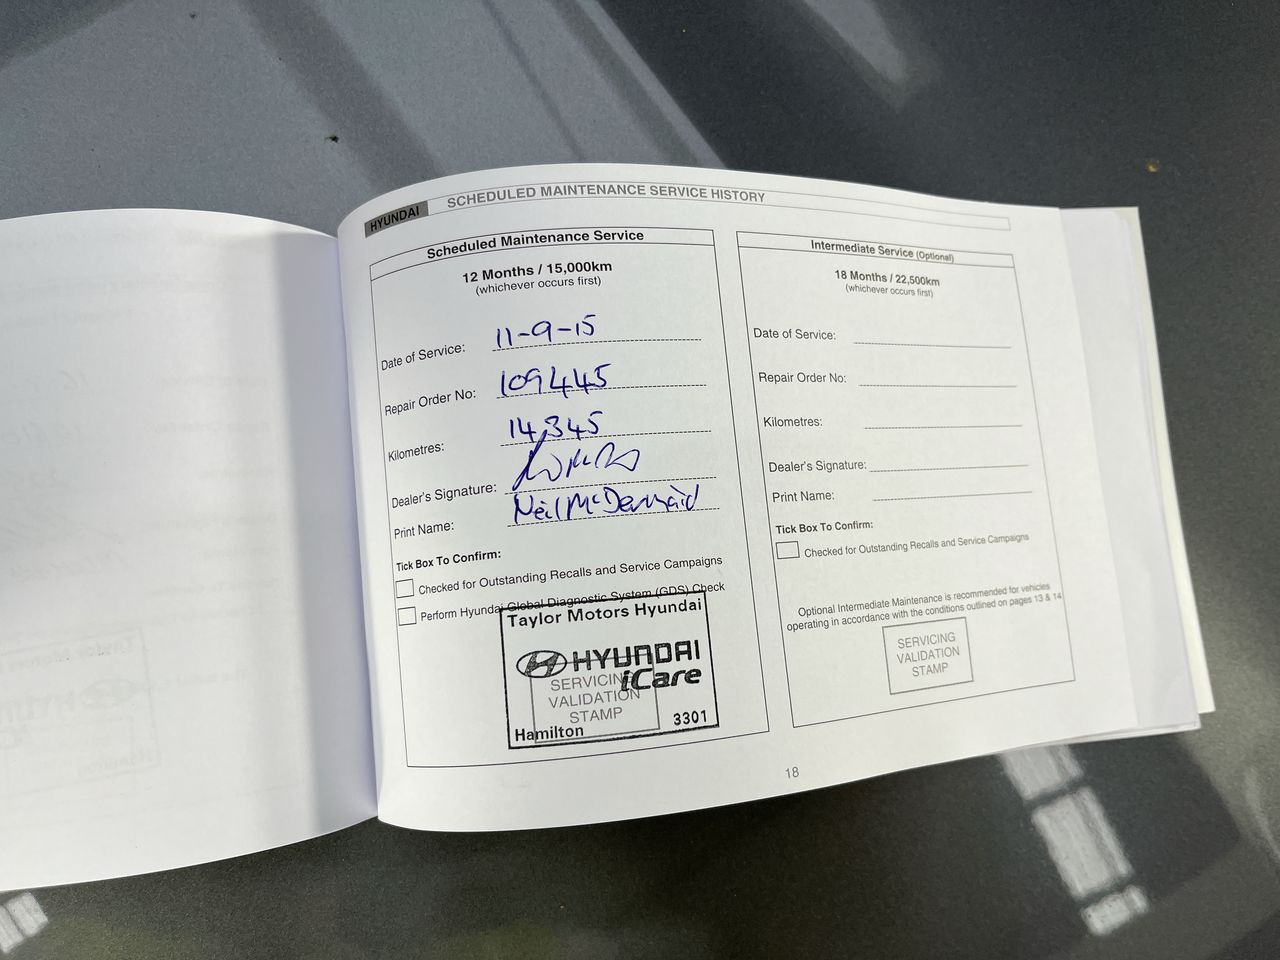 HYUNDAI
SCHEDULED MAINTENANCE SERVICE HISTORY
Scheduled Maintenance Service
12 Months / 15,000km
(whichever occurs first)
Date of Service: 11-9-15
Repair Order No: 109445
Kilometres: 14,345
Dealer's Signature:
Print Name: Neil McDermaid
Tick Box To Confirm:
Checked for Outstanding Recalls and Service Campaigns
Perform Hyundai Global Diagnostic System (GDS) Check
Taylor Motors Hyundai
HYUNDAI
iCare
SERVICING
VALIDATION
STAMP
Hamilton 3301
Intermediate Service (Optional)
18 Months / 22,500km
(whichever occurs first)
Date of Service:
Repair Order No:
Kilometres:
Dealer's Signature:
Print Name:
Tick Box To Confirm:
Checked for Outstanding Recalls and Service Campaigns
Optional Intermediate Maintenance is recommended for vehicles
operating in accordance with the conditions outlined on pages 13 & 14
SERVICING
VALIDATION
STAMP
18